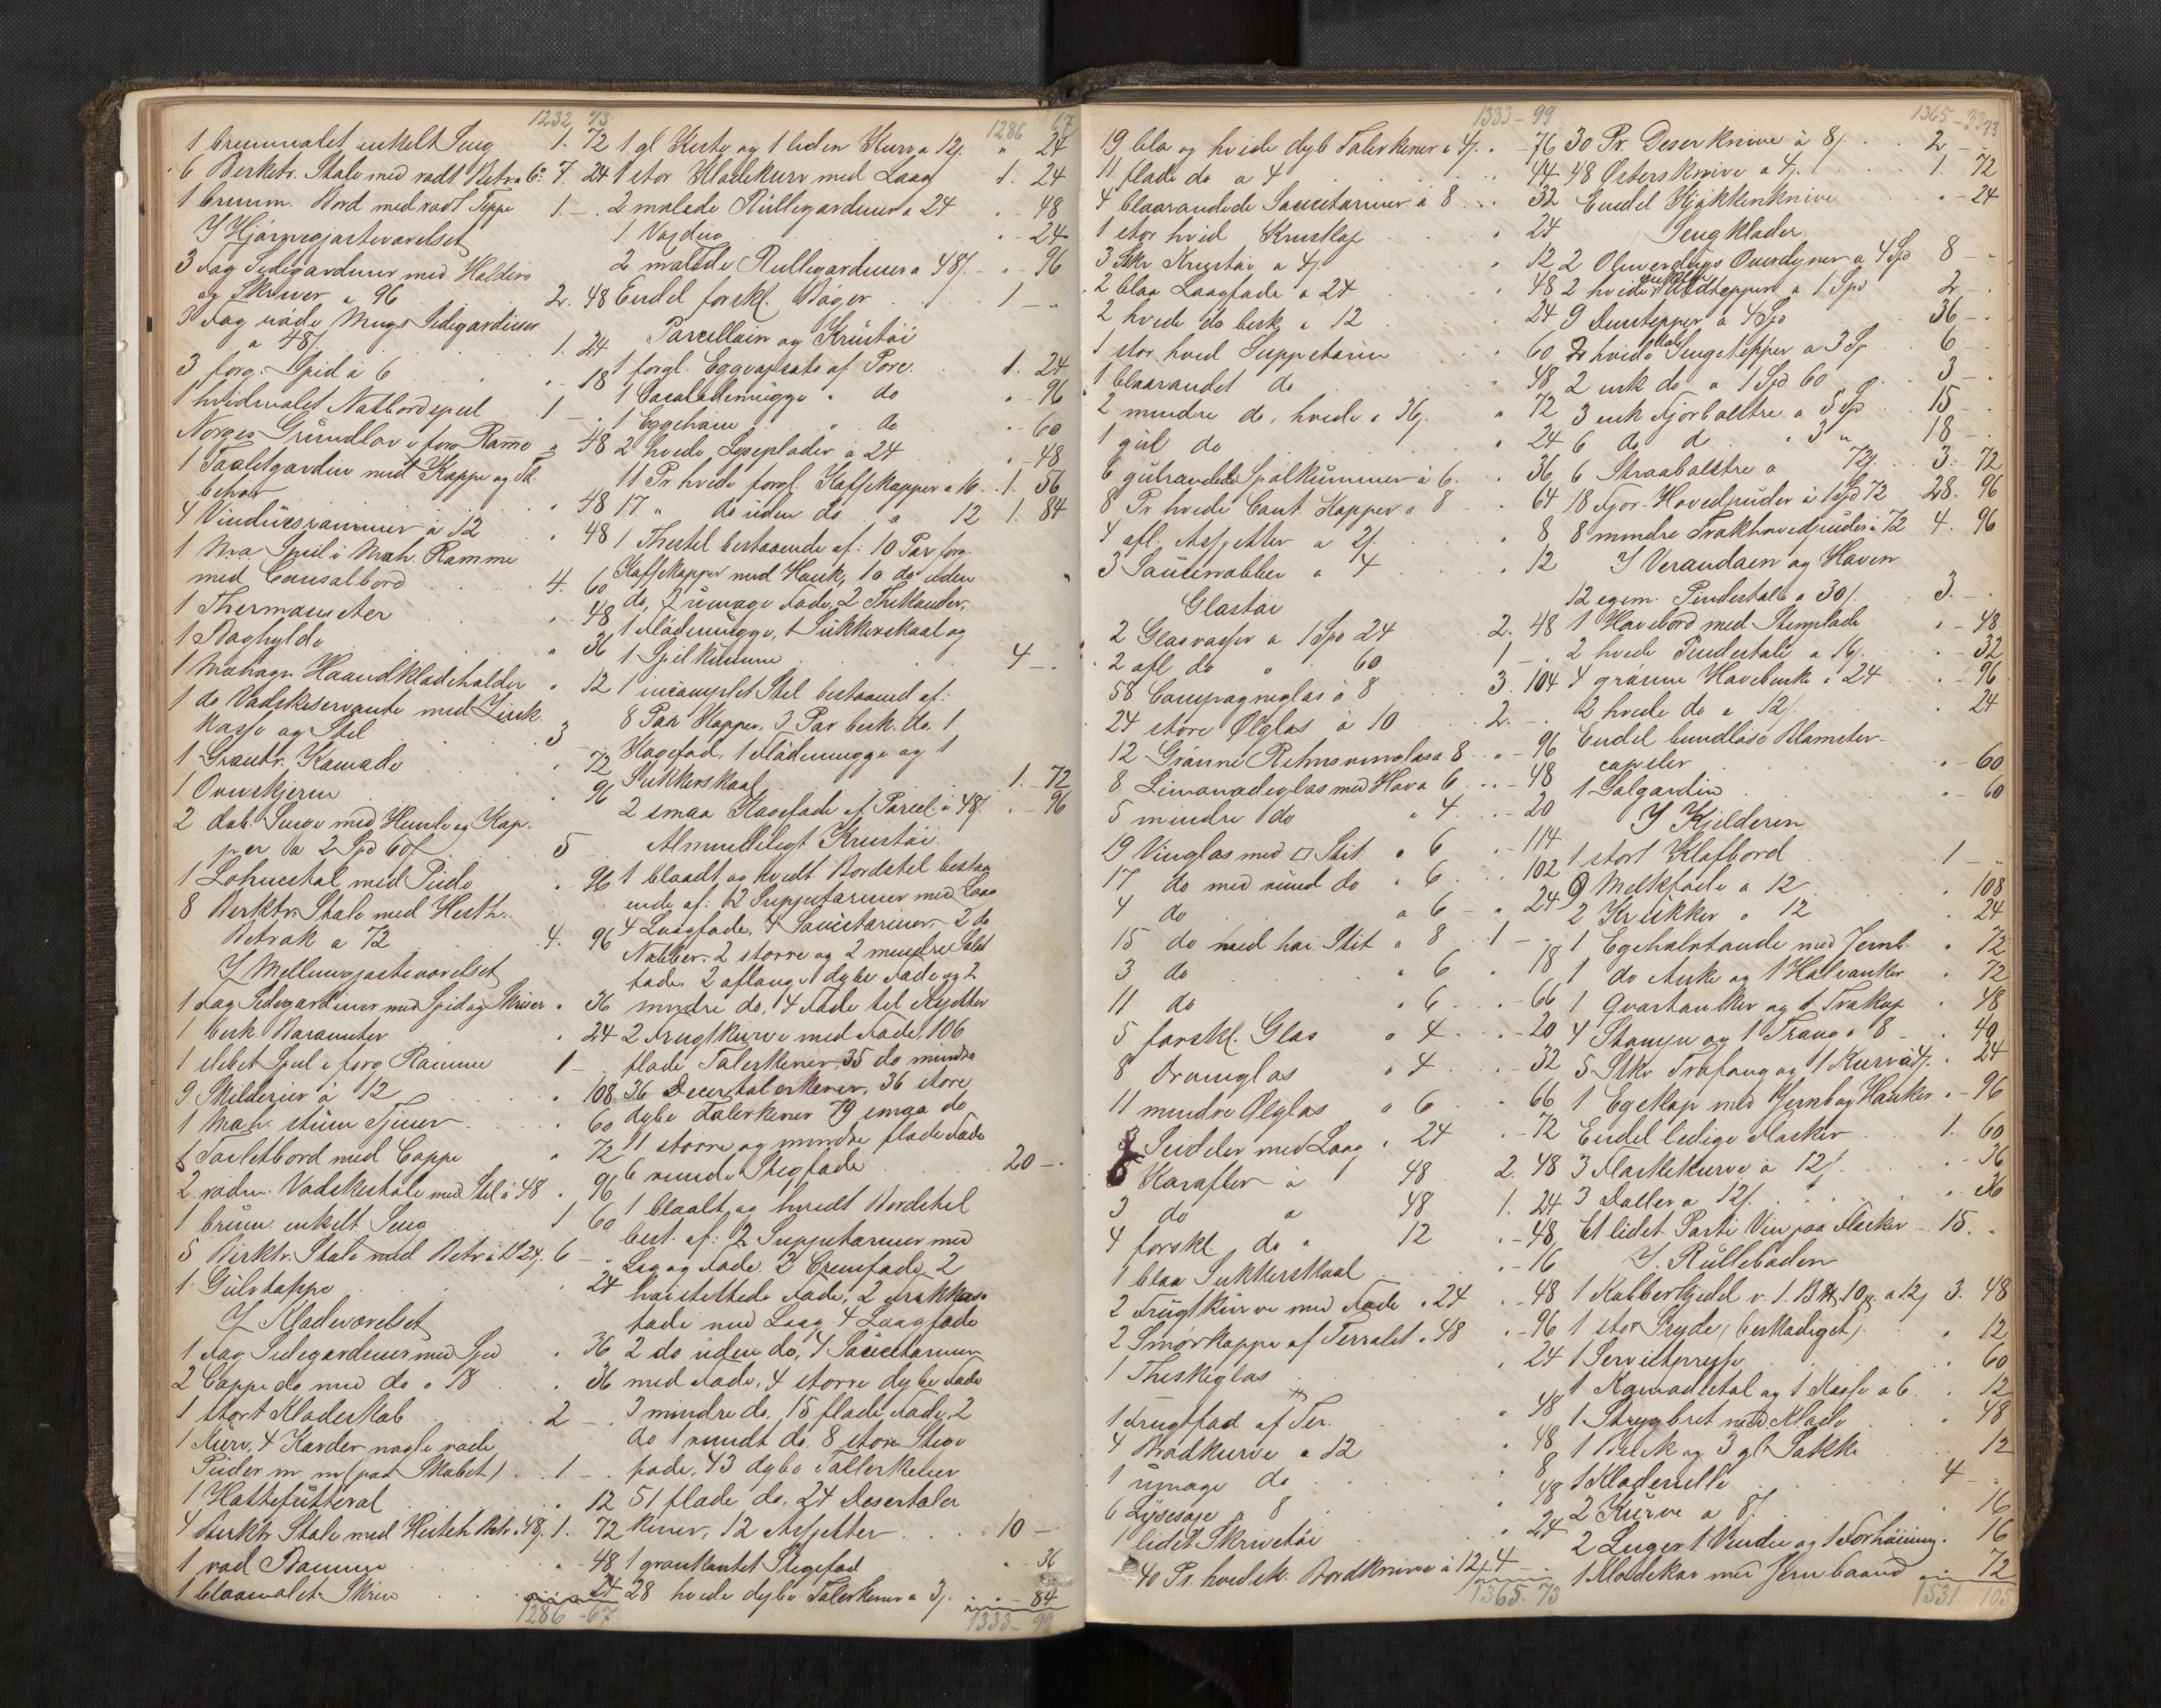 1232 73
1 brunmalet enkelt Seng 1. 72
6 Birketr. Stole med rødt Betr. a 6 7. 24
1 brunm. Bord med rødt Teppe 1. - .
I Hjørnegjæsteværelset
3 Fag Sidegardiner med Holdere
og Skruer a 96 2. 48
3 Fag røde Sidegardiner
a 48 1. 24
3 forg. Spid à 6 " 18
1 hvidmalet Natbord 1 -
Norges Grundlov i forg. Ramme " 48
1 Toiletgardin med Kappe og Til-
behør " 48
4 Vinduesrammer à 12 " 48
1 Speil i Mah. Ramme
med Consolbord 4. 60
1 Thermometer " 48
1 Boghylde " 36
1 Mahogn. Haandklædeholder " 12
1 do Vadskeservante med Zink
Kasse og Stel 3
1 Grantr. Komode " 72
1 Ovnskjerm " 96
2 dob. Senge med Himle og Kap-
per a 2 Spd 60 5 -
1 Lohnestol med Pude " 96
8 Birktr. Stole med Hesteh.
Betræk a 72 4. 96
I Mellemgjæsteværelset
1 Fag Sidegardiner med Spid og Skruer " 36
1 besk. Barometer " 24
1 slebet Speil i forg Ramme 1 -
9 Skilderier à 12 " 108
1 Mah. stum Tjener " 60
1 Toiletbord med Cappe " 72
2 rødm. Vadskestole med Stel à 48 " 96
1 brunm. enkelt Seng 1 60
5 Birktr. Stole med Betr. à 1 24 6 -
1 Gulvtæppe 24
I Klædeværelset
1 Fag Sidegardiner med Spid " 36
2 Cappe do med do a 18 " 36
1 stort Klædeskab 2 -
1 Kurv, 4 Karder nogle røde
Puder m. m (paa Skabet) 1 -
1 Hattefutteral " 12
4 Birktr Stole med Hesteh Betr. a 48 1. 72
1 rød Ramme " - 48
1 blaamalet Skrin 24
1286 - 67
1286 67
1 gl Kiste og 1 liden Kurv a 12 " 24
1 stor Klædekurv med Laag 1. 24
2 malede Rullegardiner a 24 " - 48
1 Voxdug " - 24
2 malede Rullegardiner a 48 " - 96
Endel forskl. Bøger 1 -
Porcellain og Krustøi
1 forgl. Eggopsats af Porc. 1. 24
1 Socolademugge " do " - 96
1 Eggehøne " do " - 60
2 hvide Lyseplader à 24 " - 48
11 Pr hvide forgl. Kaffekopper a 16 1. 56
17 " do uden do a 12 1. 84
1 Thestel bestaaende af: 10 Par forg.
Kaffekopper med Hank, 10 do uden
do, 2 umage Fade, 2 Thekander,
1 Flødemugge, 1 Sukkerskaal og
1 Spilkumme 4 -
1 incomplet Stel bestaaend af:
8 Par Kopper, 3 Par besk. do, 1
Kagefad, 1 Flødemugge og 1
Sukkerskaal 1. - 72
2 smaa Kagefade af Porcel. à 48 " - 96
Almindeligt Krustøi.
1 blaadt og hvidt Bordstel bestaa-
ende af: 12 Suppeterriner med Laag
4 Laagfade, 4 Saucetariner, 2 do
Nabber, 2 større og 2 mindre Salat
fade, 2 aflange dybe Fade og 2
mindre do, 14 Fade til Rysteller
2 Frugtkurve med Fade, 106
flade Talerkener, 35 do mindre
36 Desertalerkener, 36 store
dybe Talerkener 79 smaa do
11 større og mindre flade Fade
6 runde Stegfade 20 -
1 blaalt og hvidt Bordstel
best. af: 2 Suppetariner med
Lag og Fade, 2 Cremfade, 2
høistettede Fade, 2 Frikkas-
fade med Laag 4 Laagfade
2 do uden do, 4 Saucetariner
med Fade, 4 større dybe Fade
3 mindre do, 15 flade Fade, 2
do 1 rundt do, 8 store Stege
fade, 43 dybe Tallerkener
51 flade do, 24 Desertaler
kener, 12 Assjetter 10 -
1 grønkantet Stegefad " - 36
28 hvide dybe Talerkener a 3 " - 84
1333 - 99
1333 - 99
19 bla og hvide dybe Talerkener a 4 " - 76
11 flade do a 4 44
4 blaarandede Saucetariner à 8 32
1 stor hvid Kruskop " 24
3 Stkr Krustøi a 4 " 12
2 blaa Laagfade a 24 48
2 hvide do besk. a 12 24
1 stor hvid Suppetarin 60
1 blaarandet do 48
2 mindre do, hvide a 36 " 72
1 gul do " 24
6 gulrandede Spolkummer à 6 " 36
8 Pr hvide Cant. Kopper a 8 " 64
4 afl. Assjetter a 2 " 8
3 Saucenabber a 4 " 12
Glastøi
2 Glasvaser a 1 Spd 24 2. 48
2 afl do " 60 1 -
58 Campagneglas à 8 3. 104
24 store Ølglas à 10 2. -
12 Grønne Rhinsvinglas a 8 " - 96
8 Limonadeglas med Hank a 6 " - 48
5 mindre do " 4 " - 20
19 Vinglas med □ Stet a 6 " - 114
17 do med rund do a 6 " 102
4 do a 6 - " 24
15 do med høi Stet a 8 1 -
3 do " 6 " 18
11 do " 6 " - 66
5 forskl. Glas a 4 - 20
8 Dramglas a 4 " 32
11 mindre Ølglas a 6 " 66
3 Seideler med Laag a 24 " - 72
6 Karafler à 48 2. 48
3 do a 48 1. 24
4 forskl. do a 12 " - 48
1 blaa Sukkerskaal " - 16
2 Frugtkurve med Fade a 24 " - 48
2 Smørkoppe af Terralit a 48 " - 96
1 Theskeglas " 24
1 Frugtfad af Ter. " 48
4 Brødkurve a 12 " 48
1 umage do " 8
6 Lysesaxe a 8 " 48
1 lidet Skrivetøi " 24
40 Pr. hvidsk. Bordknive à 12 4 -
1365. 73
1365 - 73
30 Pr. Deserknive à 8 2 -
48 Østersknive a 4 1. 72
Endel Kjøkkenknive " - 24
Sengklæder
2 Olmerdugs Overdyner a 4 Spd 8 -
2 hvide enkelte Uldtepper a 1 Spd 2 -
9 Duntepper à 4 Spd 36 -
2 hvide dob Sengetepper a 3 Sp 6 -
2 enk do a 1 Spd 60 3 -
3 enk Fjørbolstre a 5 Sp 15 -
6 do do " 3 " 18 -
6 Straabolstre a 72 3. 72
18 Fjør-Hovedpuder à 1 Spd 72 28. 96
8 mindre Trækhovedpuder à 72 4. 96
I Verandaen og Haven
12 egem. Pindestole a 30 3. -
1 Havebord med Stenplade " - 48
2 hvide Pindestole a 16 " - 32
4 grønne Havebænke à 24 " - 96
2 hvide do a 12 24
Endel bundløse Blomster-
capsler " - 60
1 Solgardin " - 60
I Kjelderen
1 stort Klafbord 1 -
9 Melkefade a 12 " 108
2 Krukker a 12 " 24
1 Egehalvtønde med Jernb. " 72
1 do Anker og 1 Halvanker " 72
1 Qvartanker og 1 Trækop " 48
4 Stamper og 1 Trang a 8 " 40
5 Stkr Træfang og 1 Kurv a 4 " 24
1 Egekop med Jernb og Hanker " - 96
Endel ledige Flasker 1. 60
3 Flaskekurve à 12 " - 36
3 Baller a 12 " - 36
Et lidet Parti Vin paa Flasker - 15 -
I Rulleboden
1 Kobberkjedel v. 1. B℔ 10 ℔ a 12 3. 48
1 stor Gryde (beskadiget) " 12
1 Servietpresse " 60
1 Komodestol og 1 Kasse a 6 " 12
1 Strygbret med Klæde " 48
1 Bænk og 3 gl. Sække 12
1 Klæderulle 4 -
2 Kurve a 8 " 16
2 Luger 1 Vindu og 1 Forhøining " 16
1 Klædekar med Jernbaand " 72
1531 105